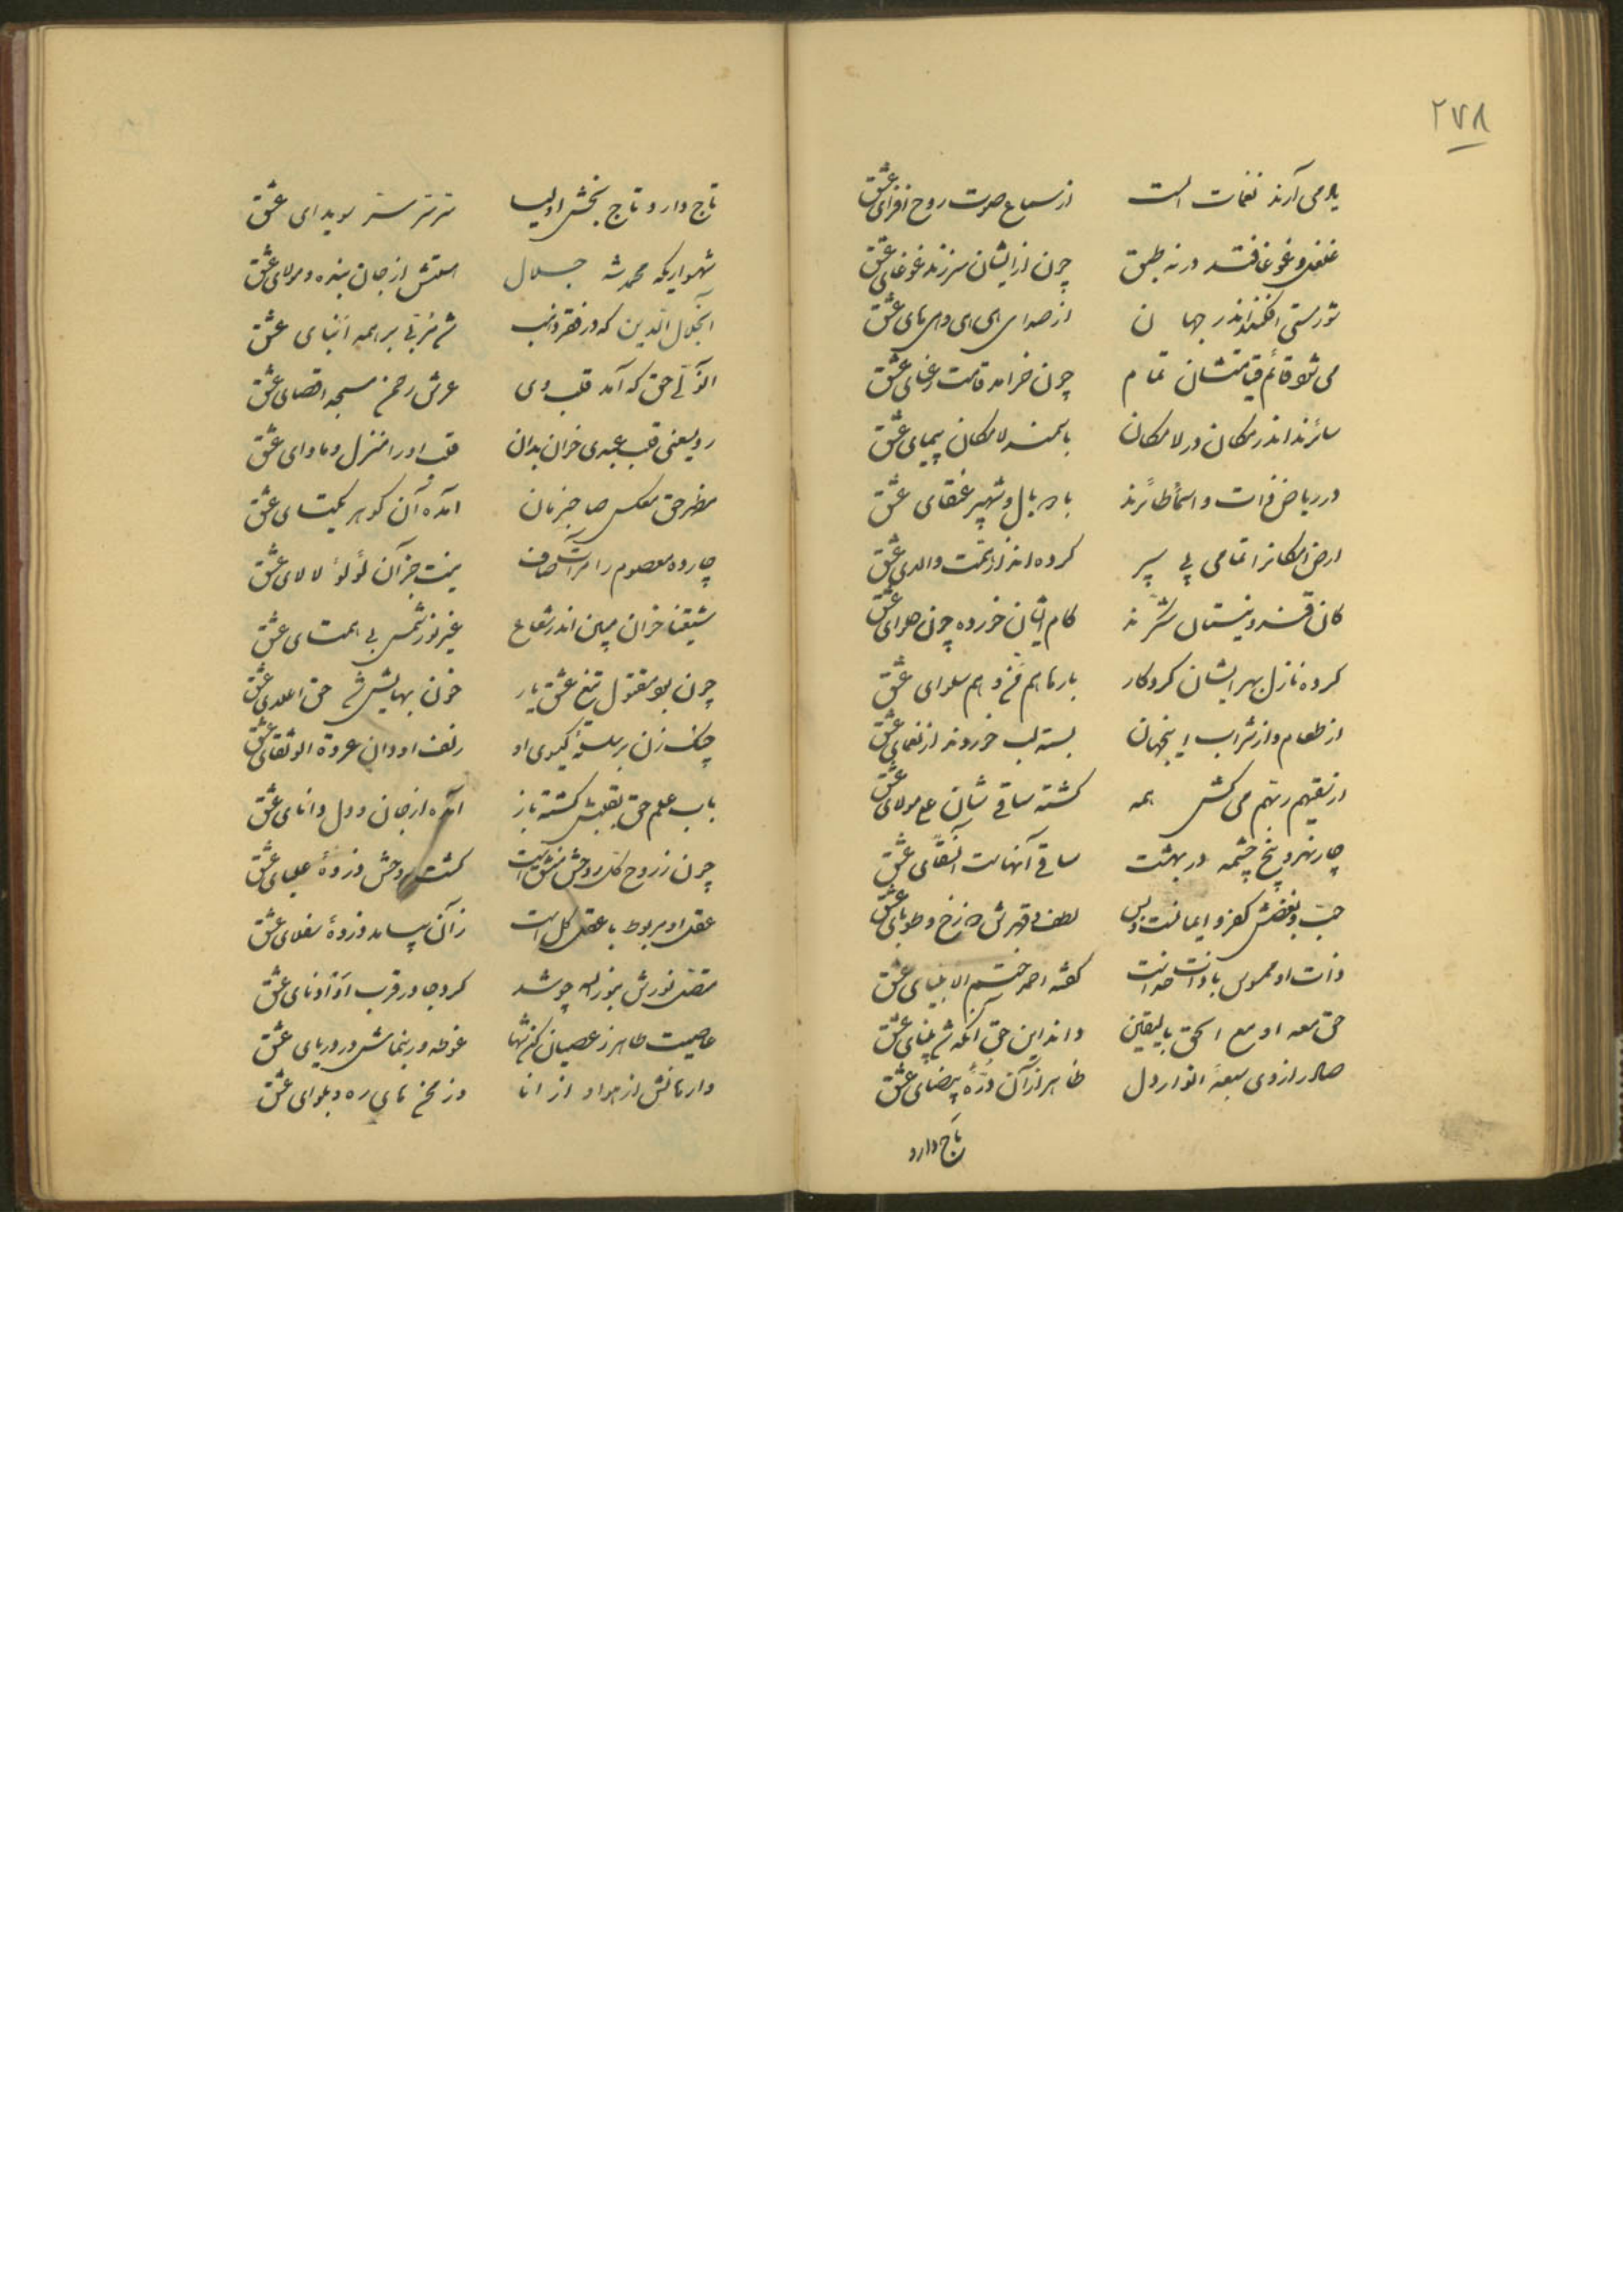 ۲۷۸
یاد می آرند نغمات الست از سماع صوت روح افزای عشق
غلغل و غوغا فتد در نه طبق چون از ایشان سر زند غوغای عشق
شورستی افکنند اندر جهان از صدای های و هیهای عشق
می شود قائم قیامتشان تمام چون خرامد قامت رعنای عشق
سائرند اندر مکان و در لامکان با سمند لامکان پیمای عشق
در ریاض ذات و اسما طائرند با پر بال و شهپر عنقای عشق
ارض امکانرا تمامی پی سپر کرده اند از همت والای عشق
کان قند و نیستان شکرند کام ایشان خورده چون حلوای عشق
کرده نازل بهر ایشان کردگار بارها هم من و هم سلوای عشق
از طعام و از شراب اینجهان بسته لب خوردند از نعمای عشق
از سقیهم ربهم می کش همه گشته ساقی شان علی مولای عشق
چار نهر و پنج چشمه در بهشت ساقی آنهاست آن سقای عشق
حب و بغضش کفر و ایمانست و بس لطف و قهرش دوزخ و طوبای عشق
ذات او ممسوس با ذات خداست گفته احمد ختم الانبیای عشق
حق معه او مع الحق بالیقین داند این حق آنکه شد بینای عشق
صادر از وی سبعهٔ انوار دل ظاهر از آن درهٔ بیضای عشق
تاج دارد
تاج دار و تاج بخش اولیا سر سر سر سویدای عشق
شهسواریکه محمد شه جلال استش از جان بنده و مولای عشق
آنجلال الدین که در فقر و نسب شد مربی بر همه ابنای عشق
آنولی حق که آمد قلب وی عرش رحمن مسجد اقصای عشق
رو یسعنی قلب عبدی خوان بدان قلب او را منزل و ماوای عشق
مظهر حق عکس صاحبزمان آمده آن گوهر یکتای عشق
چارده معصوم را مرآت صاف نیست جز آن لؤلؤ لالای عشق
شیعتنا خوان ببین اندر شعاع غیر نور شمس بی همتای عشق
چون بود مقتول تیغ عشق یار خون بهایش شد حق اعلای عشق
چنگ زن بر سلسلهٔ گیسوی او زلف او دان عروة الوثقای عشق
باب علم حق بقلبش گشته باز آمده از جان و دل دانای عشق
چون ز روح کل روحش منشق است گشت روحش ذروهٔ علیای عشق
عقل او مربوط با عقل کل است زآن بیامد ذروهٔ سفلای عشق
متصل نورش بنور الله چو شد کرد جا در قرب او ادنای عشق
عاصیت طاهر ز عصیان کن شها غوطه ور بنماش در دریای عشق
وارهانش از هوا و از انا وز منخهای ره و بلوای عشق